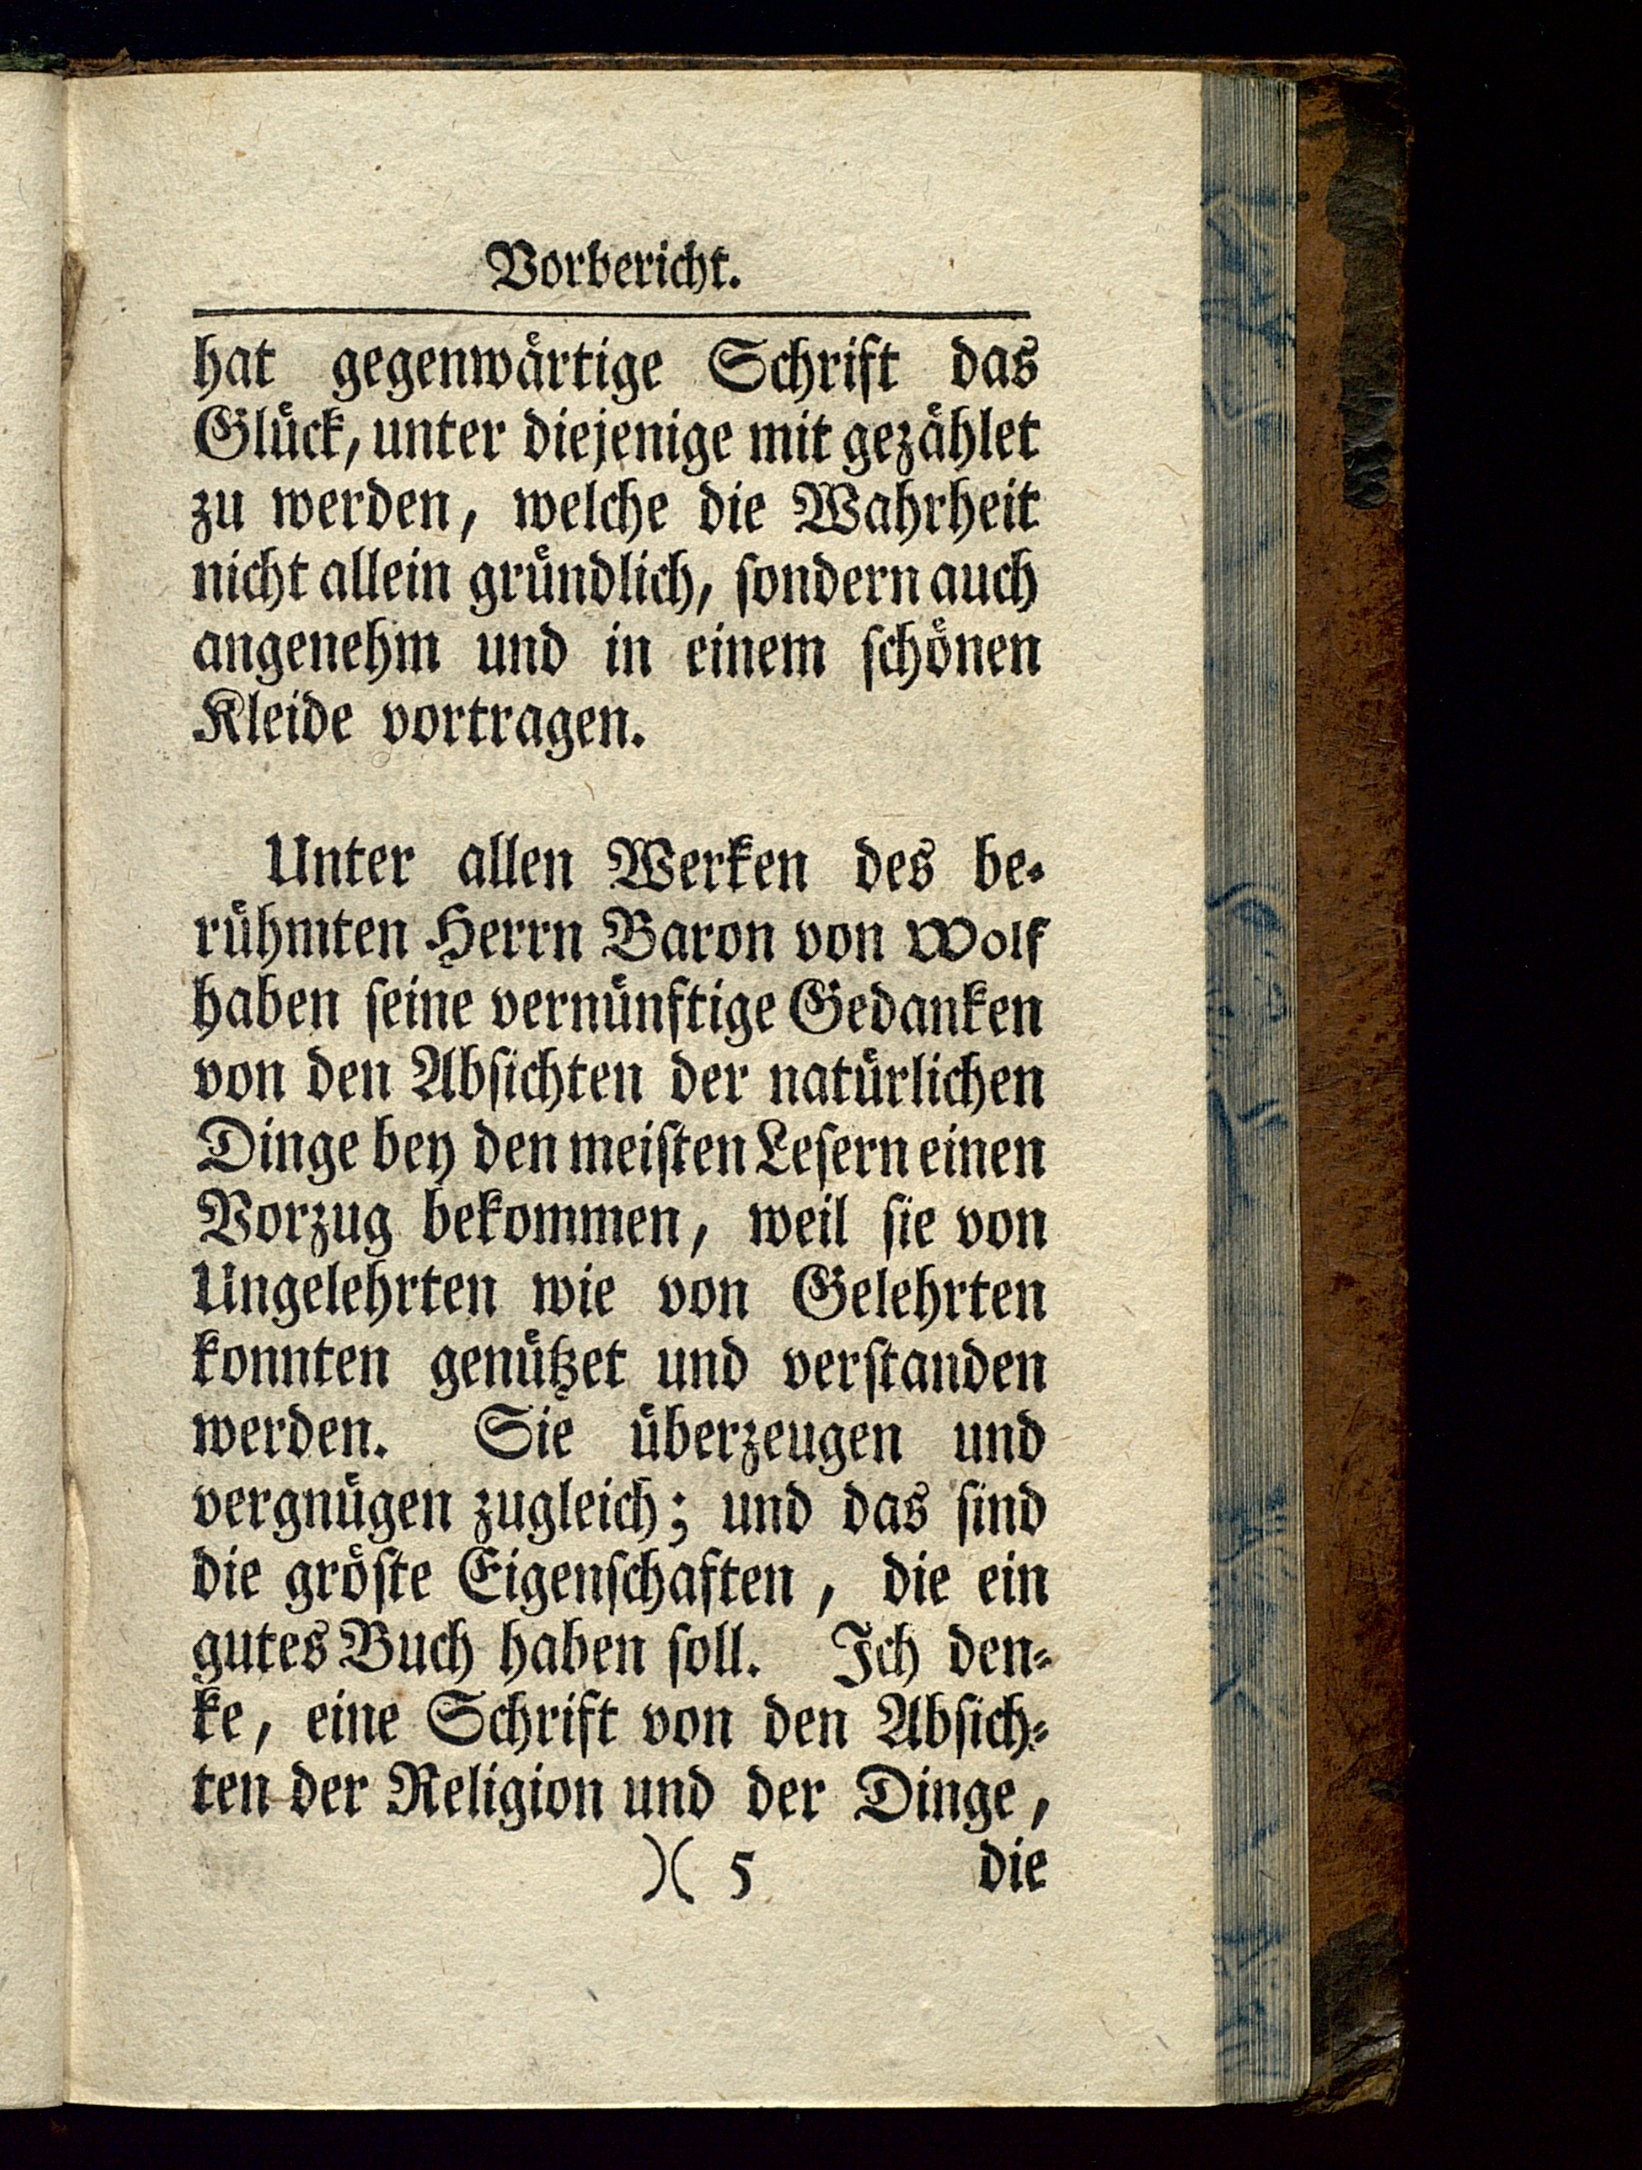 Vorbericht.
hat gegenwärtige Schrift das
Glück, unter diejenige mit gezählet
zu werden, welche die Wahrheit
nicht allein gründlich, ſondern auch
angenehm und in einem ſchönen
Kleide vortragen.
Unter allen Werken des be⸗
rühmten Herrn Baron von Wolf
haben ſeine vernünftige Gedanken
von den Abſichten der natürlichen
Dinge bey den meiſten Leſern einen
Vorzug bekommen, weil ſie von
Ungelehrten wie von Gelehrten
konnten genützet und verſtanden
werden. Sie überzeugen und
vergnügen zugleich; und das ſind
die gröſte Eigenſchaften, die ein
gutes Buch haben ſoll. Ich den⸗
ke, eine Schrift von den Abſich⸗
ten der Religion und der Dinge,
)( 5 die